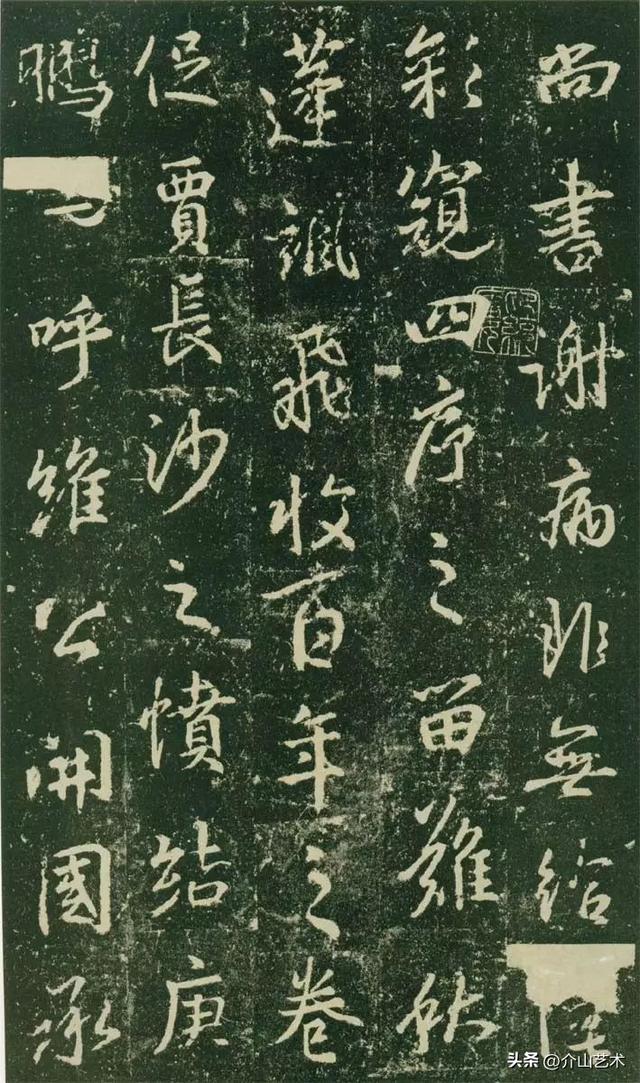 尚書謝病非無給
彩窺四序之留難駐
蓬颻飛收百年之卷
促賈長沙之憤結庚
鵬呼維公開國承
头条@介山艺术